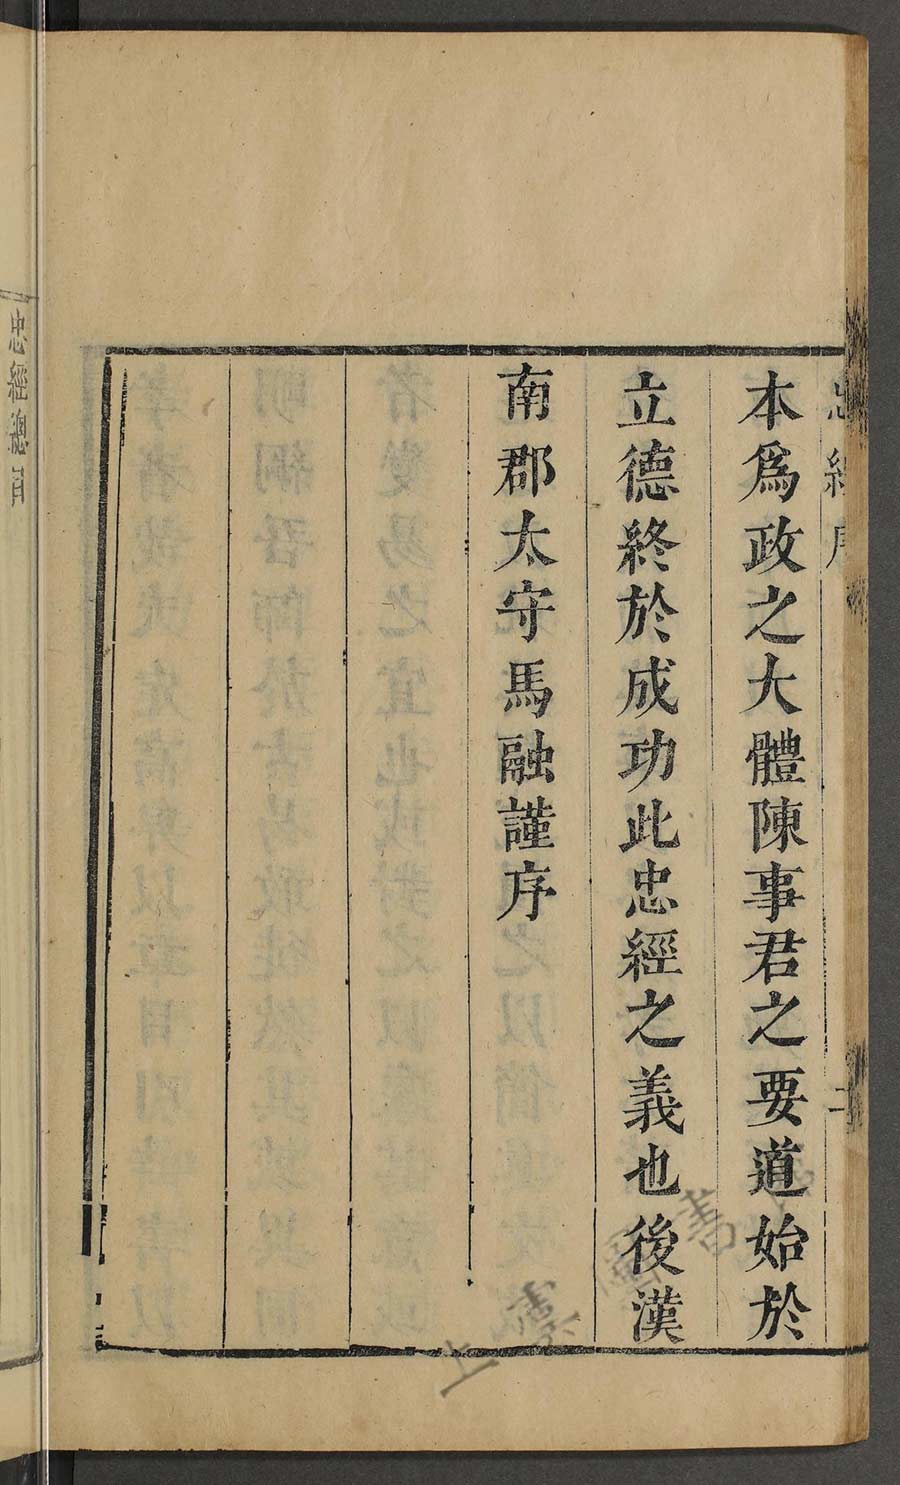 忠經序
二
本爲政之大體陳事君之要道始於
立德終於成功此忠經之義也後漢
南郡太守馬融謹序
忠經總